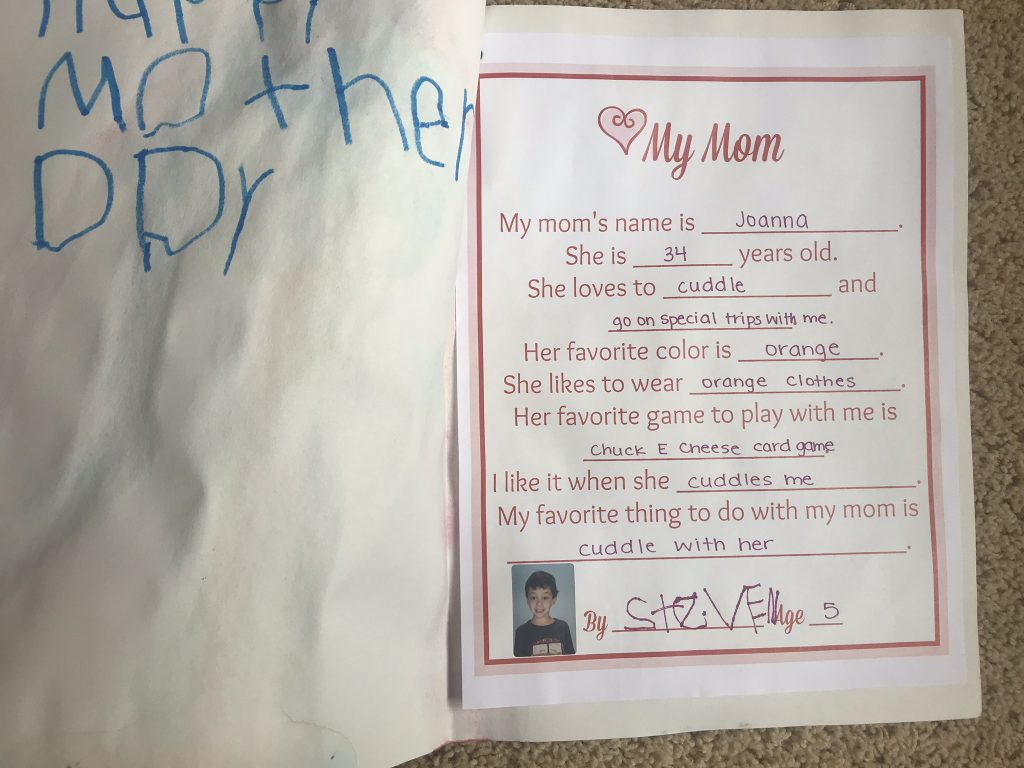 Happy
Mother
DDy
My Mom
My mom's name is Joanna.
She is 34 years old.
She loves to cuddle and
go on special trips with me.
Her favorite color is orange.
She likes to wear orange clothes.
Her favorite game to play with me is
Chuck E Cheese card game
I like it when she cuddles me.
My favorite thing to do with my mom is
cuddle with her.
By STEVEN Age 5